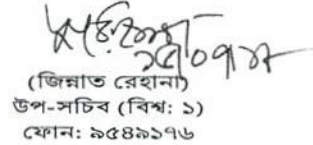 (জিন্নাত রেহানা)
উপ-সচিব (বিশ্ব: ১)
ফোন: ৯৫৪৯১৭৬